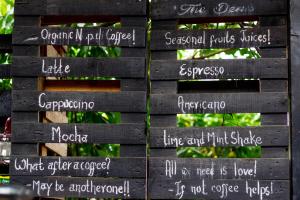 Organic Nepali Coffee!
Latte
Cappuccino
Mocha
What after a coffee?
May be another one!!
Seasonal fruits Juices!
Espresso
Americano
Lime and Mint Shake
All we need is love!
If not coffee helps!